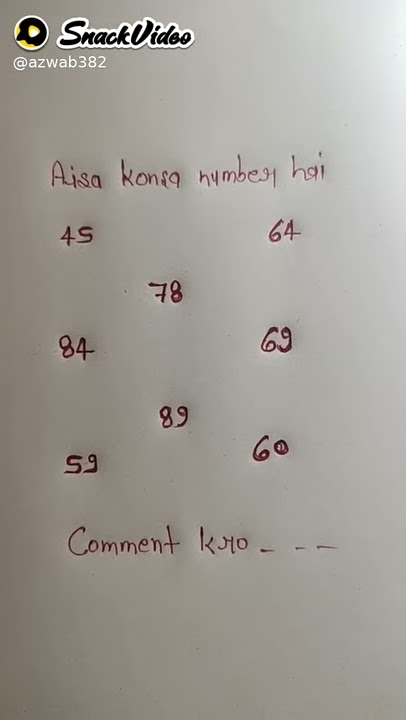 SnackVideo
@azwab382
Aisa konsa number hai
45 64
78
84 69
89
59 60
Comment kro - - -